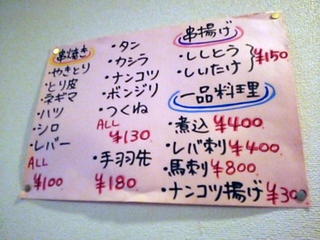 串焼き
・やきとり
・とり皮
・ネギマ
・ハツ
・シロ
・レバー
ALL
¥100
・タン
・カシラ
・ナンコツ
・ボンジリ
・つくね
ALL
¥130
・手羽先
¥180
串揚げ
・ししとう
・しいたけ
¥150
一品料理
・煮込 ¥400
・レバ刺 ¥400
・馬刺 ¥800
・ナンコツ揚げ ¥30